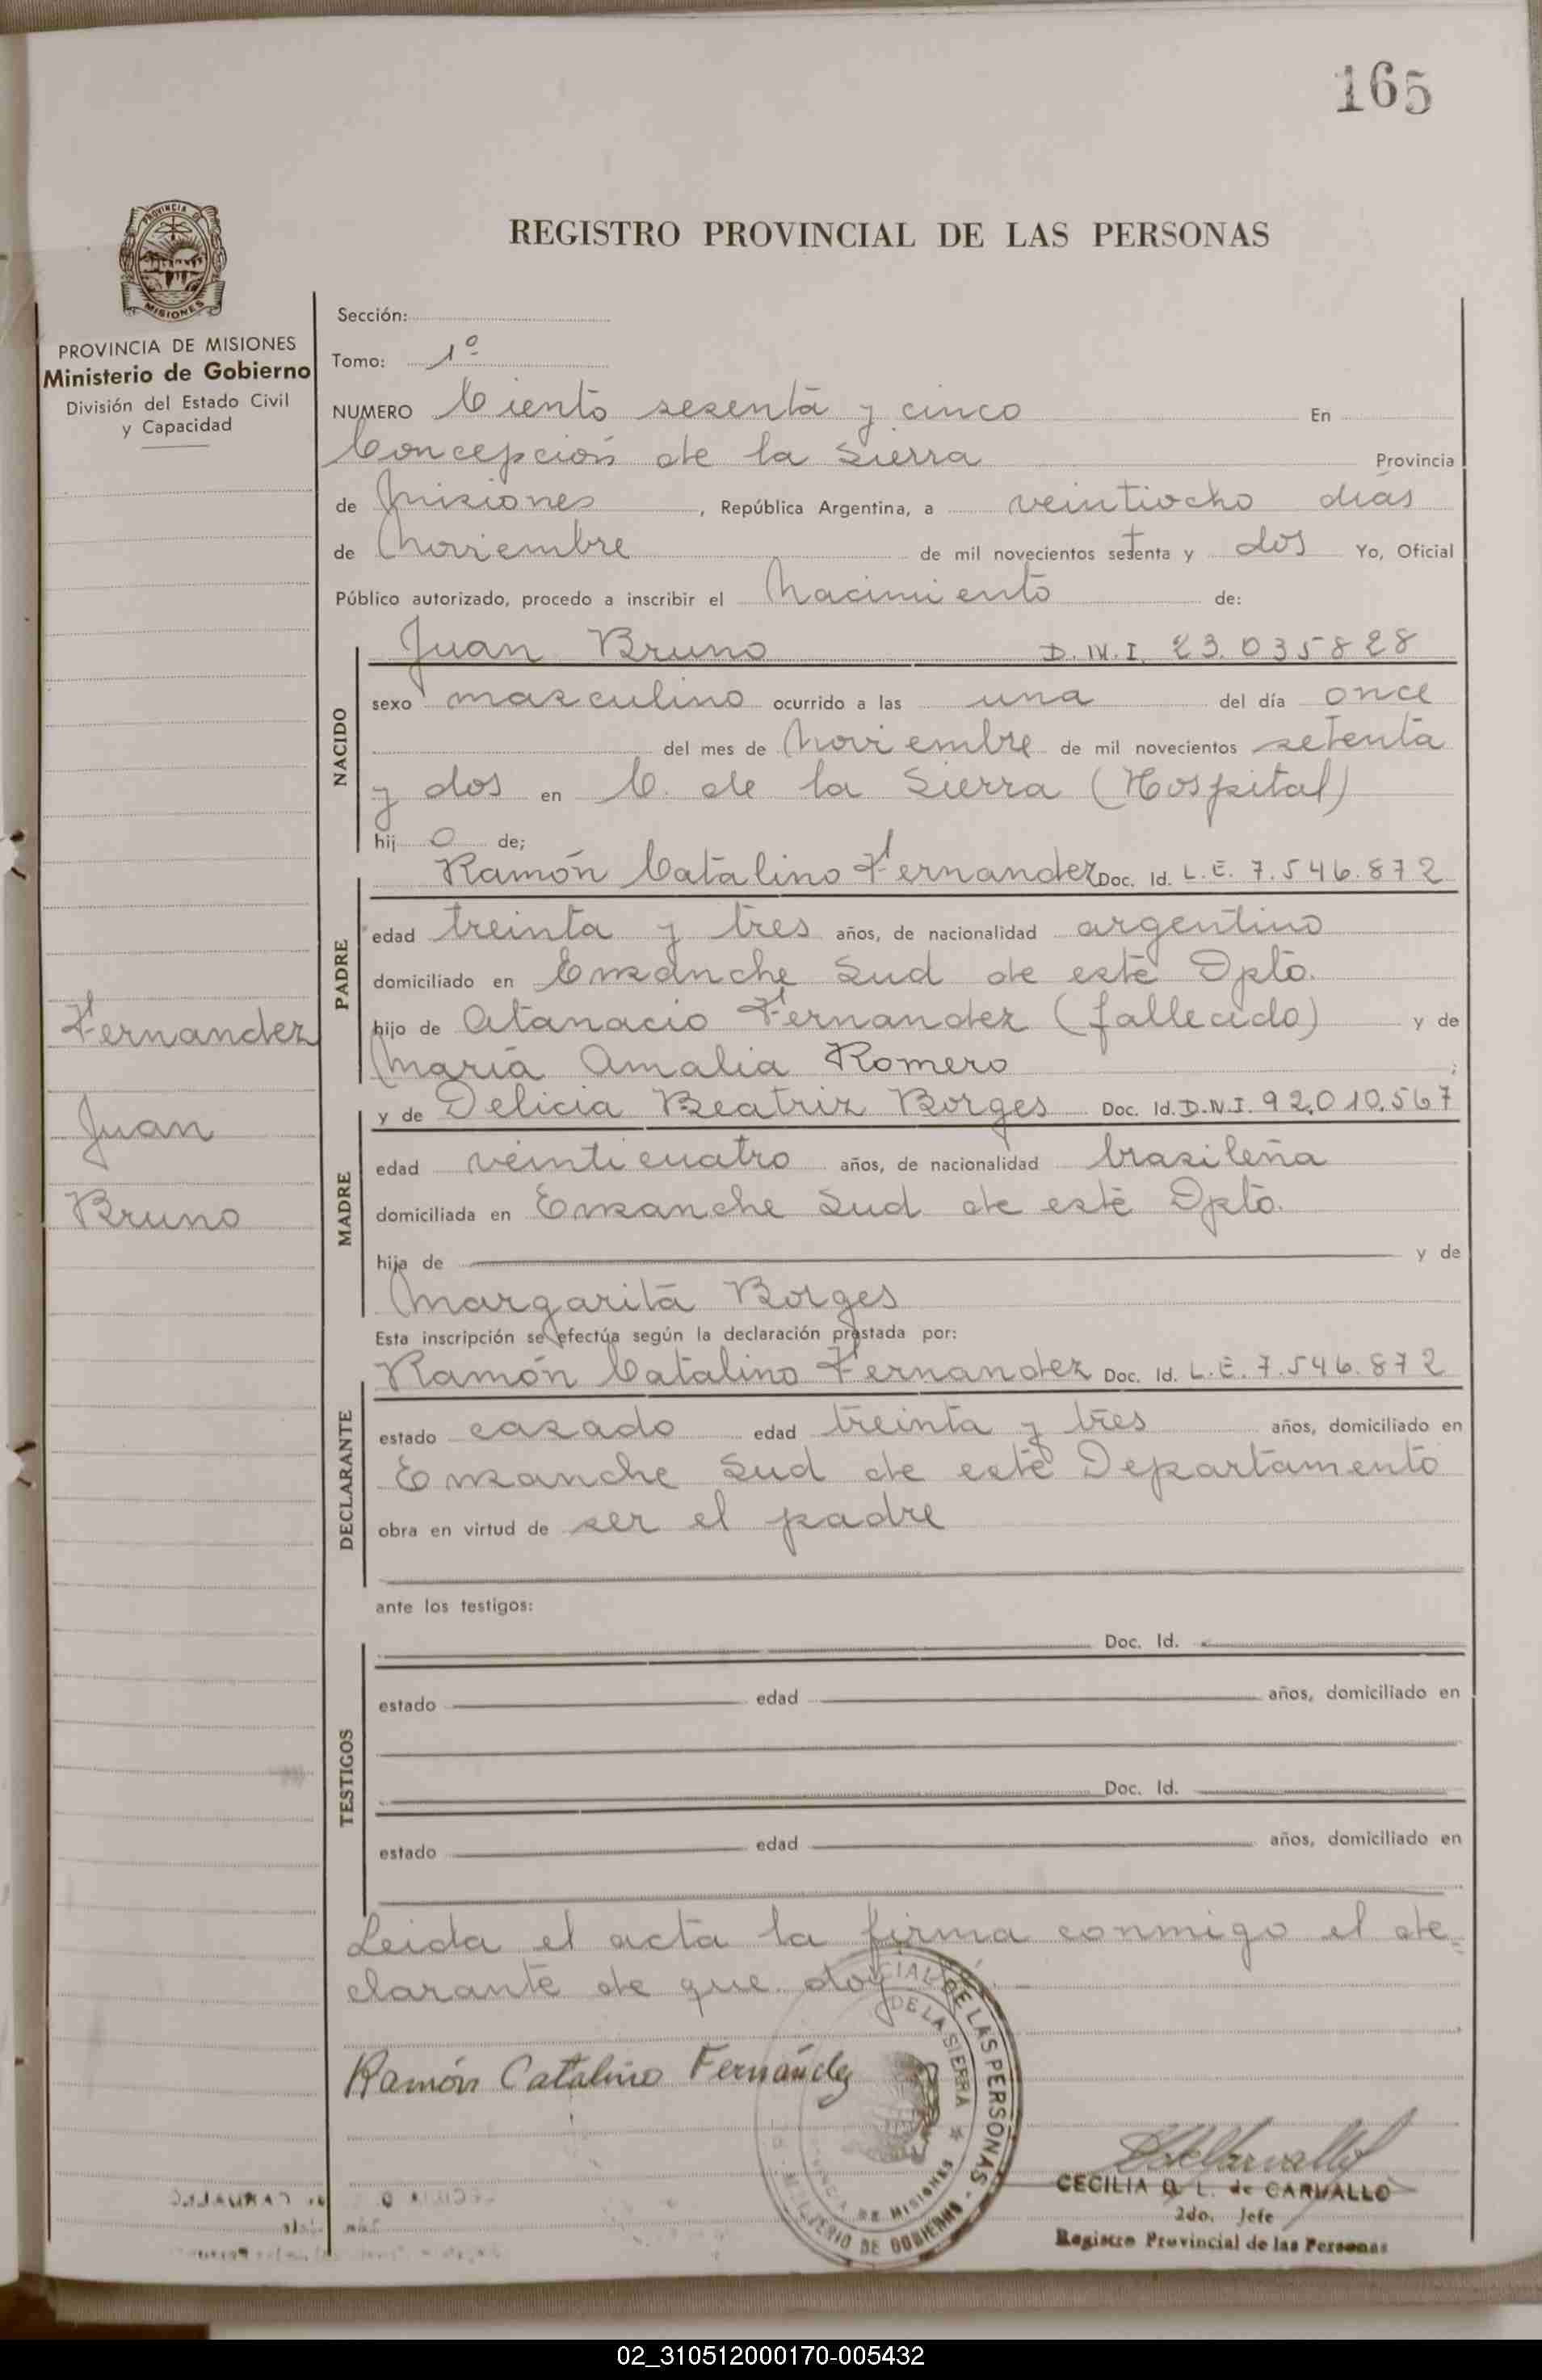 165
PROVINCIA DE
MISIONES
PROVINCIA DE MISIONES
Ministerio de Gobierno
División del Estado Civil
y Capacidad
Fernandez
Juan
Bruno
REGISTRO PROVINCIAL DE LAS PERSONAS
Sección:
Tomo: 1º
NUMERO Ciento sesenta y cinco En
Concepción de la Sierra Provincia
de Misiones, República Argentina, a veintiocho días
de Noviembre de mil novecientos setenta y dos Yo, Oficial
Público autorizado, procedo a inscribir el Nacimiento de:
Juan Bruno D.N.I. 23.035828
NACIDO
sexo masculino ocurrido a las una del día once
del mes de Noviembre de mil novecientos setenta
y dos en C. de la Sierra (Hospital)
hij o de;
Ramón Catalino Fernandez Doc. Id. L.E. 7.546.872
PADRE
edad treinta y tres años, de nacionalidad argentino
domiciliado en Ensanche Sud de este Dpto.
hijo de Atanacio Fernandez (fallecido) y de
María Amalia Romero ;
y de Delicia Beatriz Borges Doc. Id. D.N.I. 92.010.567
MADRE
edad veinticuatro años, de nacionalidad brasileña
domiciliada en Ensanche Sud de este Dpto.
hija de y de
Margarita Borges
Esta inscripción se efectúa según la declaración prestada por:
Ramón Catalino Fernandez Doc. Id. L.E. 7.546.872
DECLARANTE
estado casado edad treinta y tres años, domiciliado en
Ensanche Sud de este Departamento
obra en virtud de ser el padre
ante los testigos:
Doc. Id.
TESTIGOS
estado edad años, domiciliado en
Doc. Id.
estado edad años, domiciliado en
Leida el acta la firma conmigo el de=
clarante de que doy
Ramón Catalino Fernández
CIAL DE LAS PERSONAS - MINISTERIO DE GOBIERNO -
DE LA SIERRA * PROVINCIA DE MISIONES
CECILIA D. L. de CARVALLO
2do. Jefe
Registro Provincial de las Personas
02_310512000170-005432